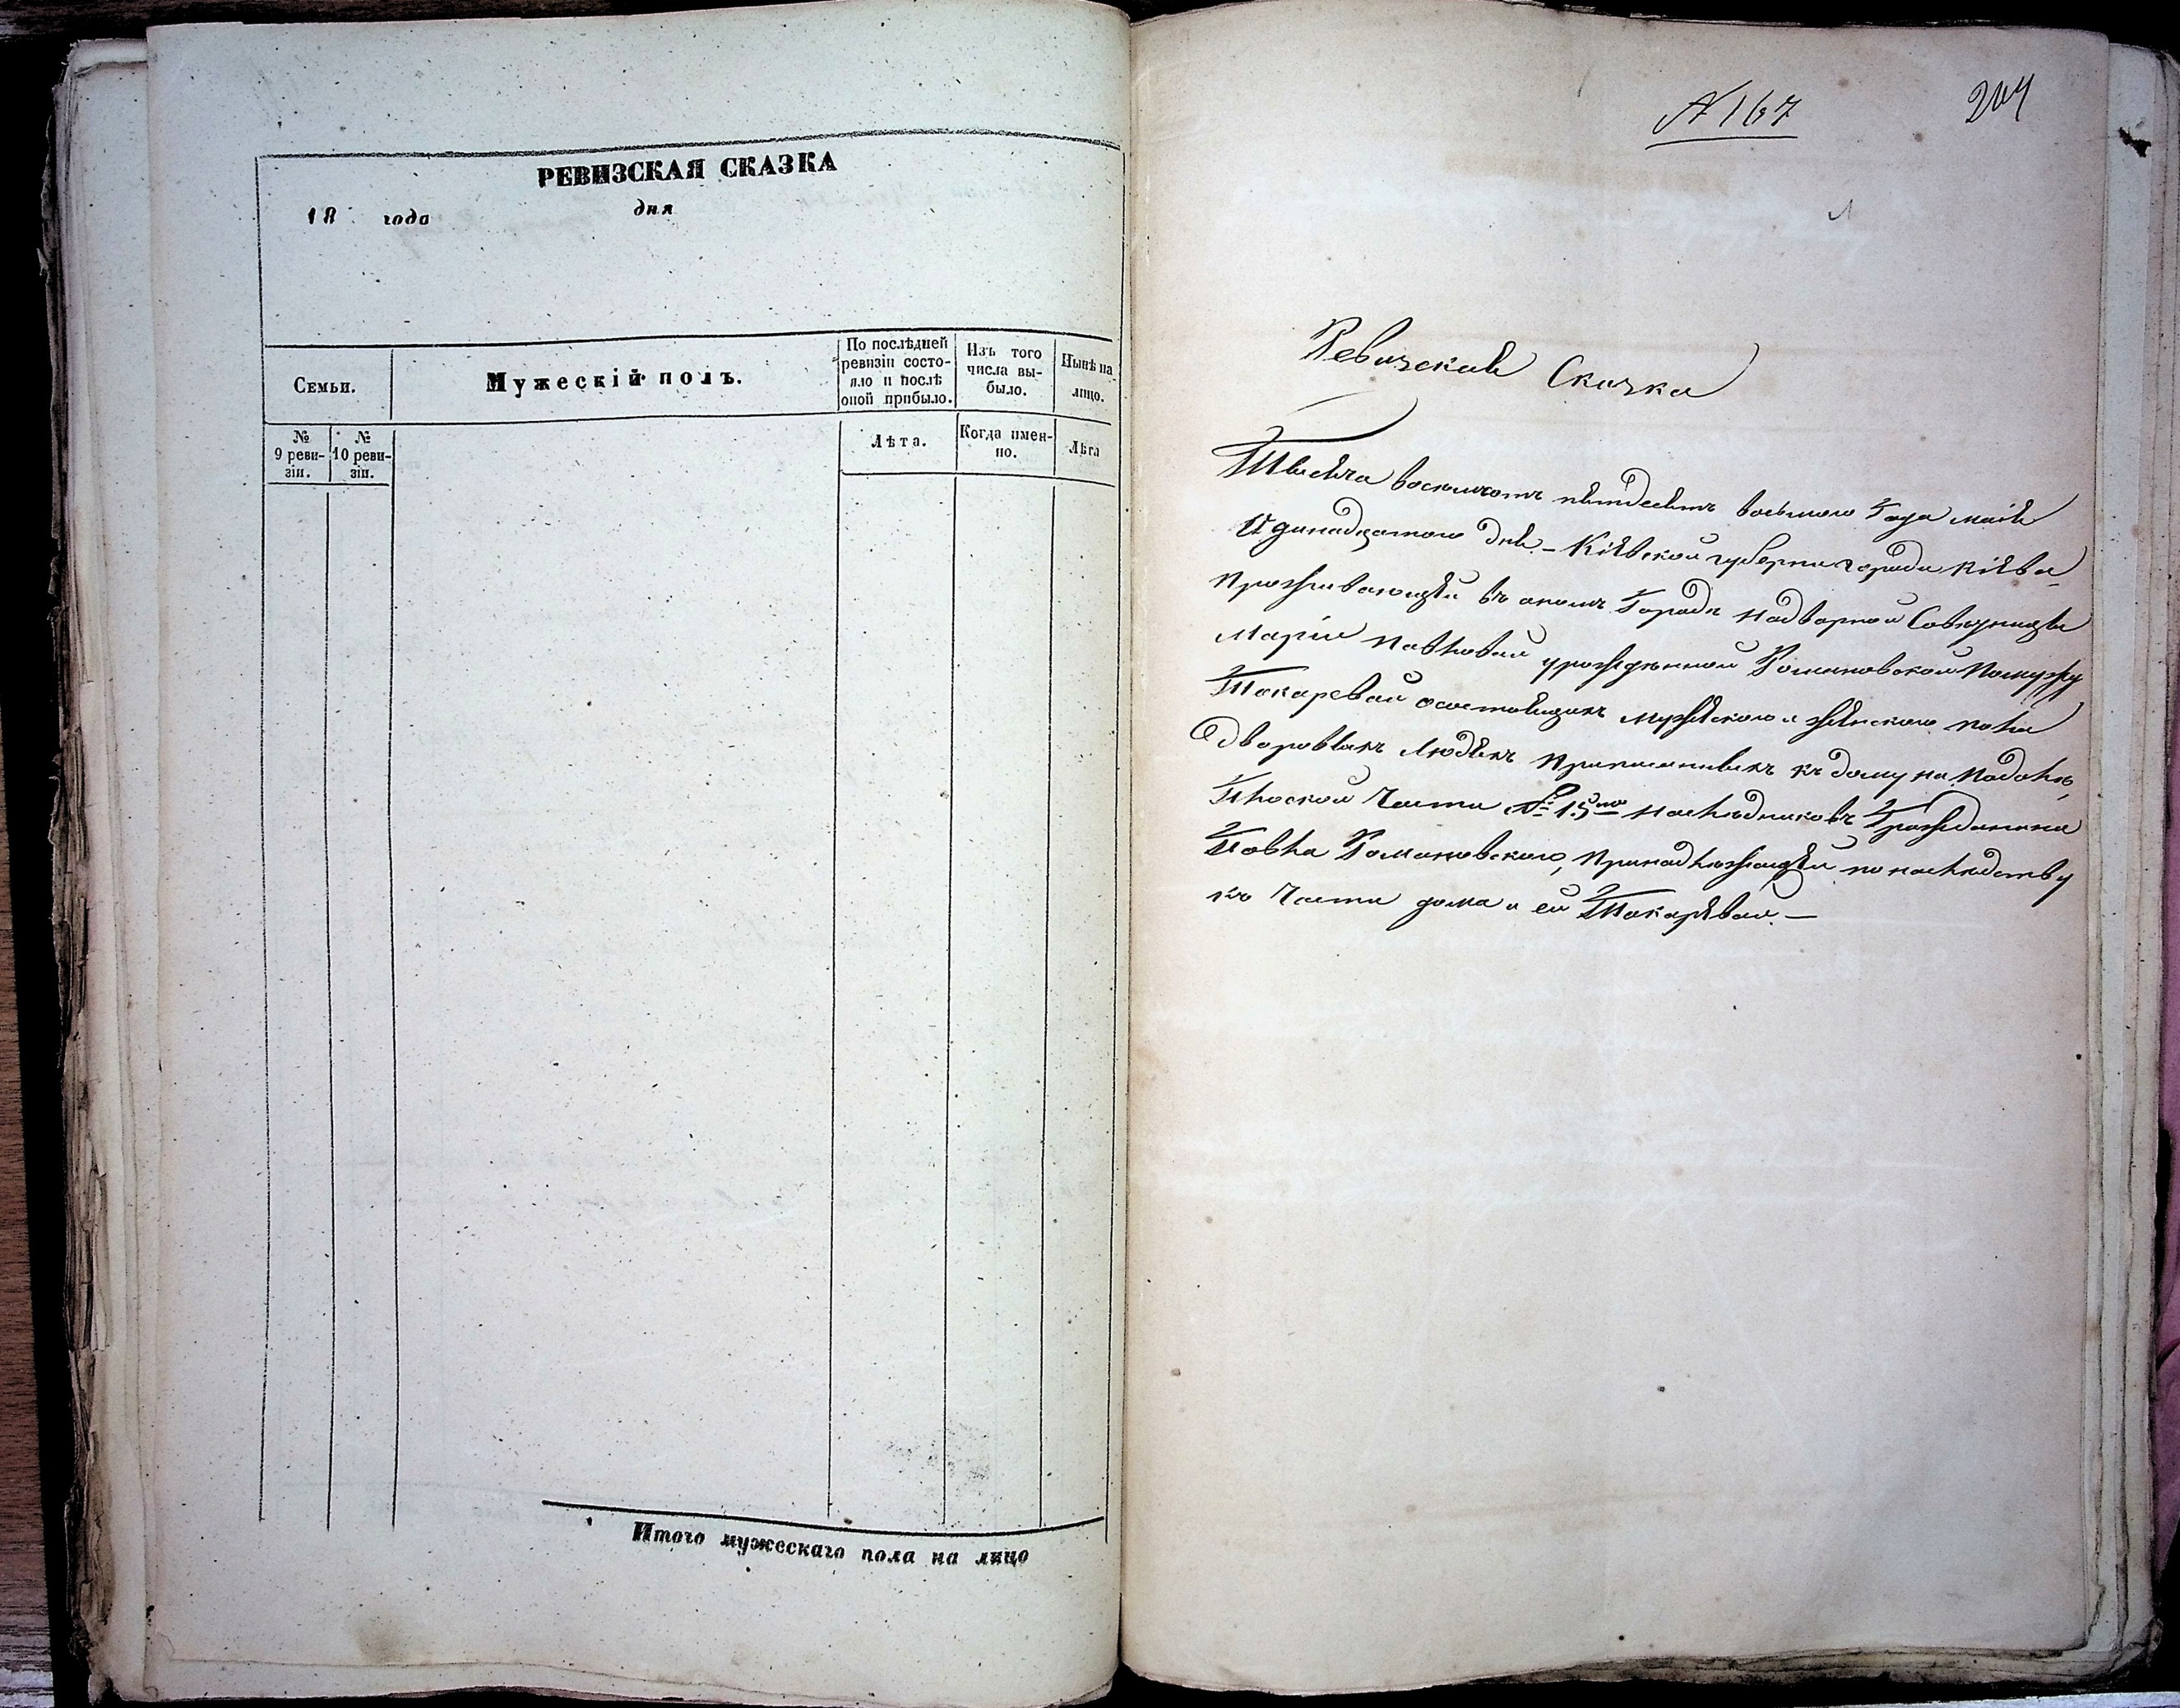 РЕВИЗСКАЯ СКАЗКА
18 года дня
Семьи.
Мужескій полъ.
По послѣдней
ревизіи состо-
яло и послѣ
оной прибыло.
Изъ того
числа вы-
было.
Нынѣ на
лицо.
№
9 реви-
зіи.
№
10 реви-
зіи.
Лѣта.
Когда имен-
но.
Лѣта
Итого мужескаго пола на лицо
№ 167
204
Ревизская Сказка
Тысяча восемьсотъ пятдесятъ восьмого Года маія
Одинадцатого дня – Кіевской губерни города Кіева
Проживающей въ ономъ Городѣ надворной Совѣтницы
Маріи Павловой урожденной Романовской По мужу
Токаревой о состоящихъ мужескаго и женскаго пола
Дворовыхъ Людяхъ Приписанныхъ къ дому на Подолѣ,
Плоской Части № 15го наслѣдниковъ Гражданина
Павла Романовского, Принадлежащей по наслѣдству
въ Части дома и ей Токаревой. –